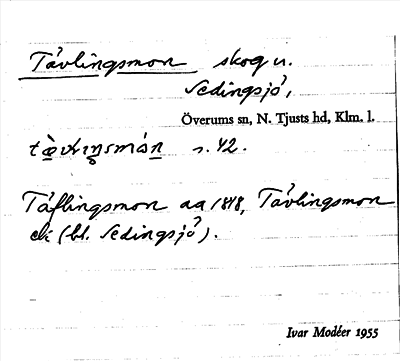 Tåvlingsmon skog u.
Sedingsjö,
Överums sn, N. Tjusts hd, Klm. l.
s. 42.
Tåflingsmon aa 1818, Tåvlingsmon
ek (bl. Sedingsjö).
Ivar Modéer 1955